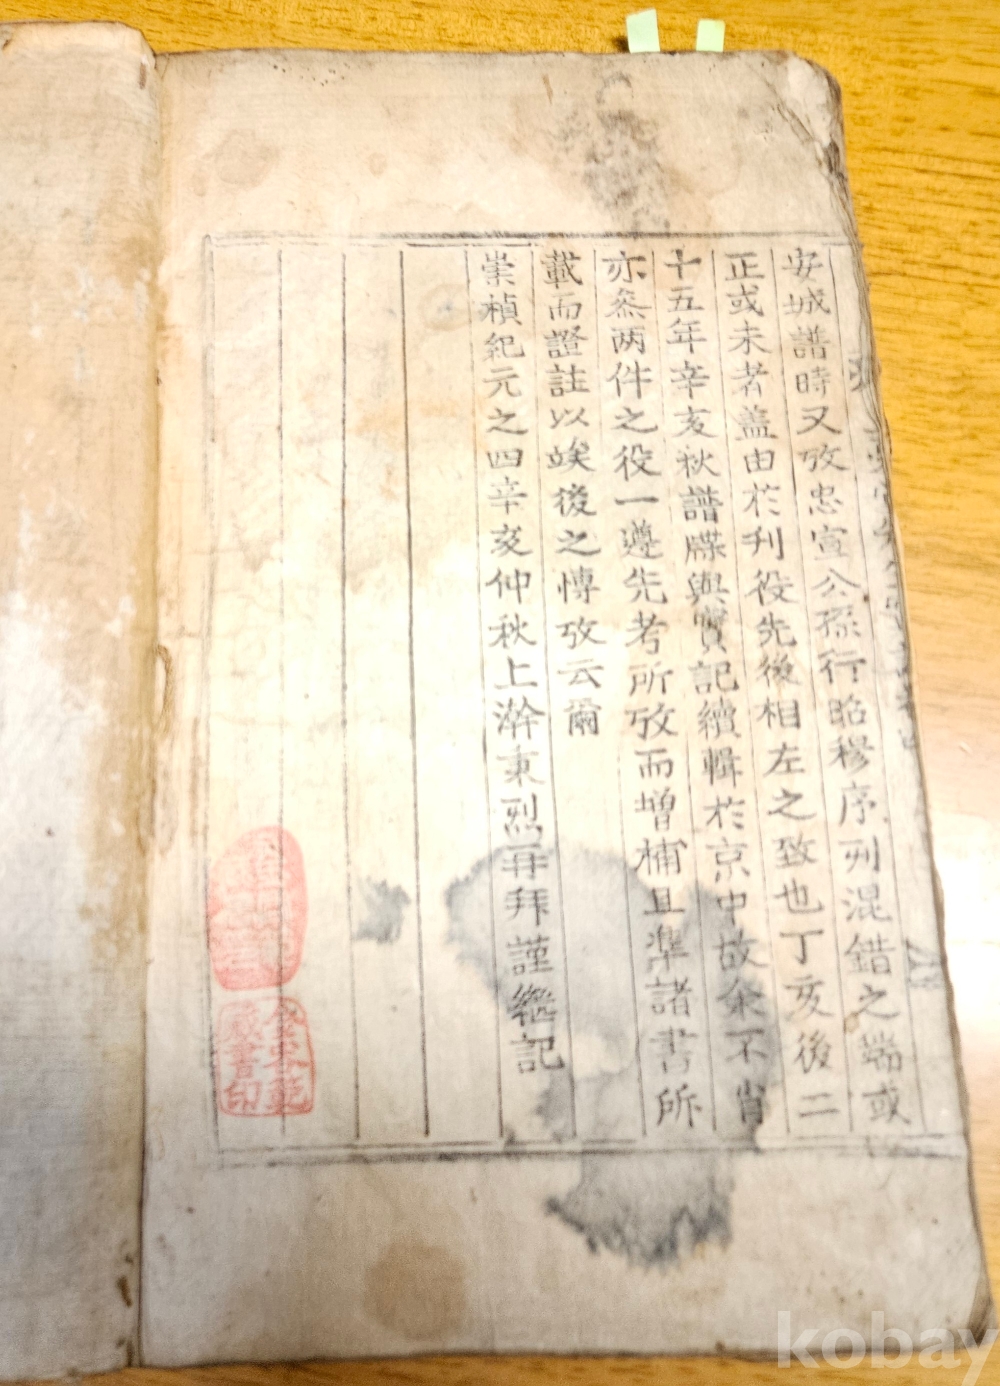 安城譜時又攷忠宣公孫行昭穆序列混錯之端或
正或未者盖由於刋役先後相左之致也丁亥後二
十五年辛亥秋譜牒與實記續輯於京中故余不肖
亦叅兩件之役一遵先考所攷而增補且準諸書所
載而證註以竢後之博攷云爾
崇禎紀元之四辛亥仲秋上澣秉烈再拜謹繼記
藏書印
kobay